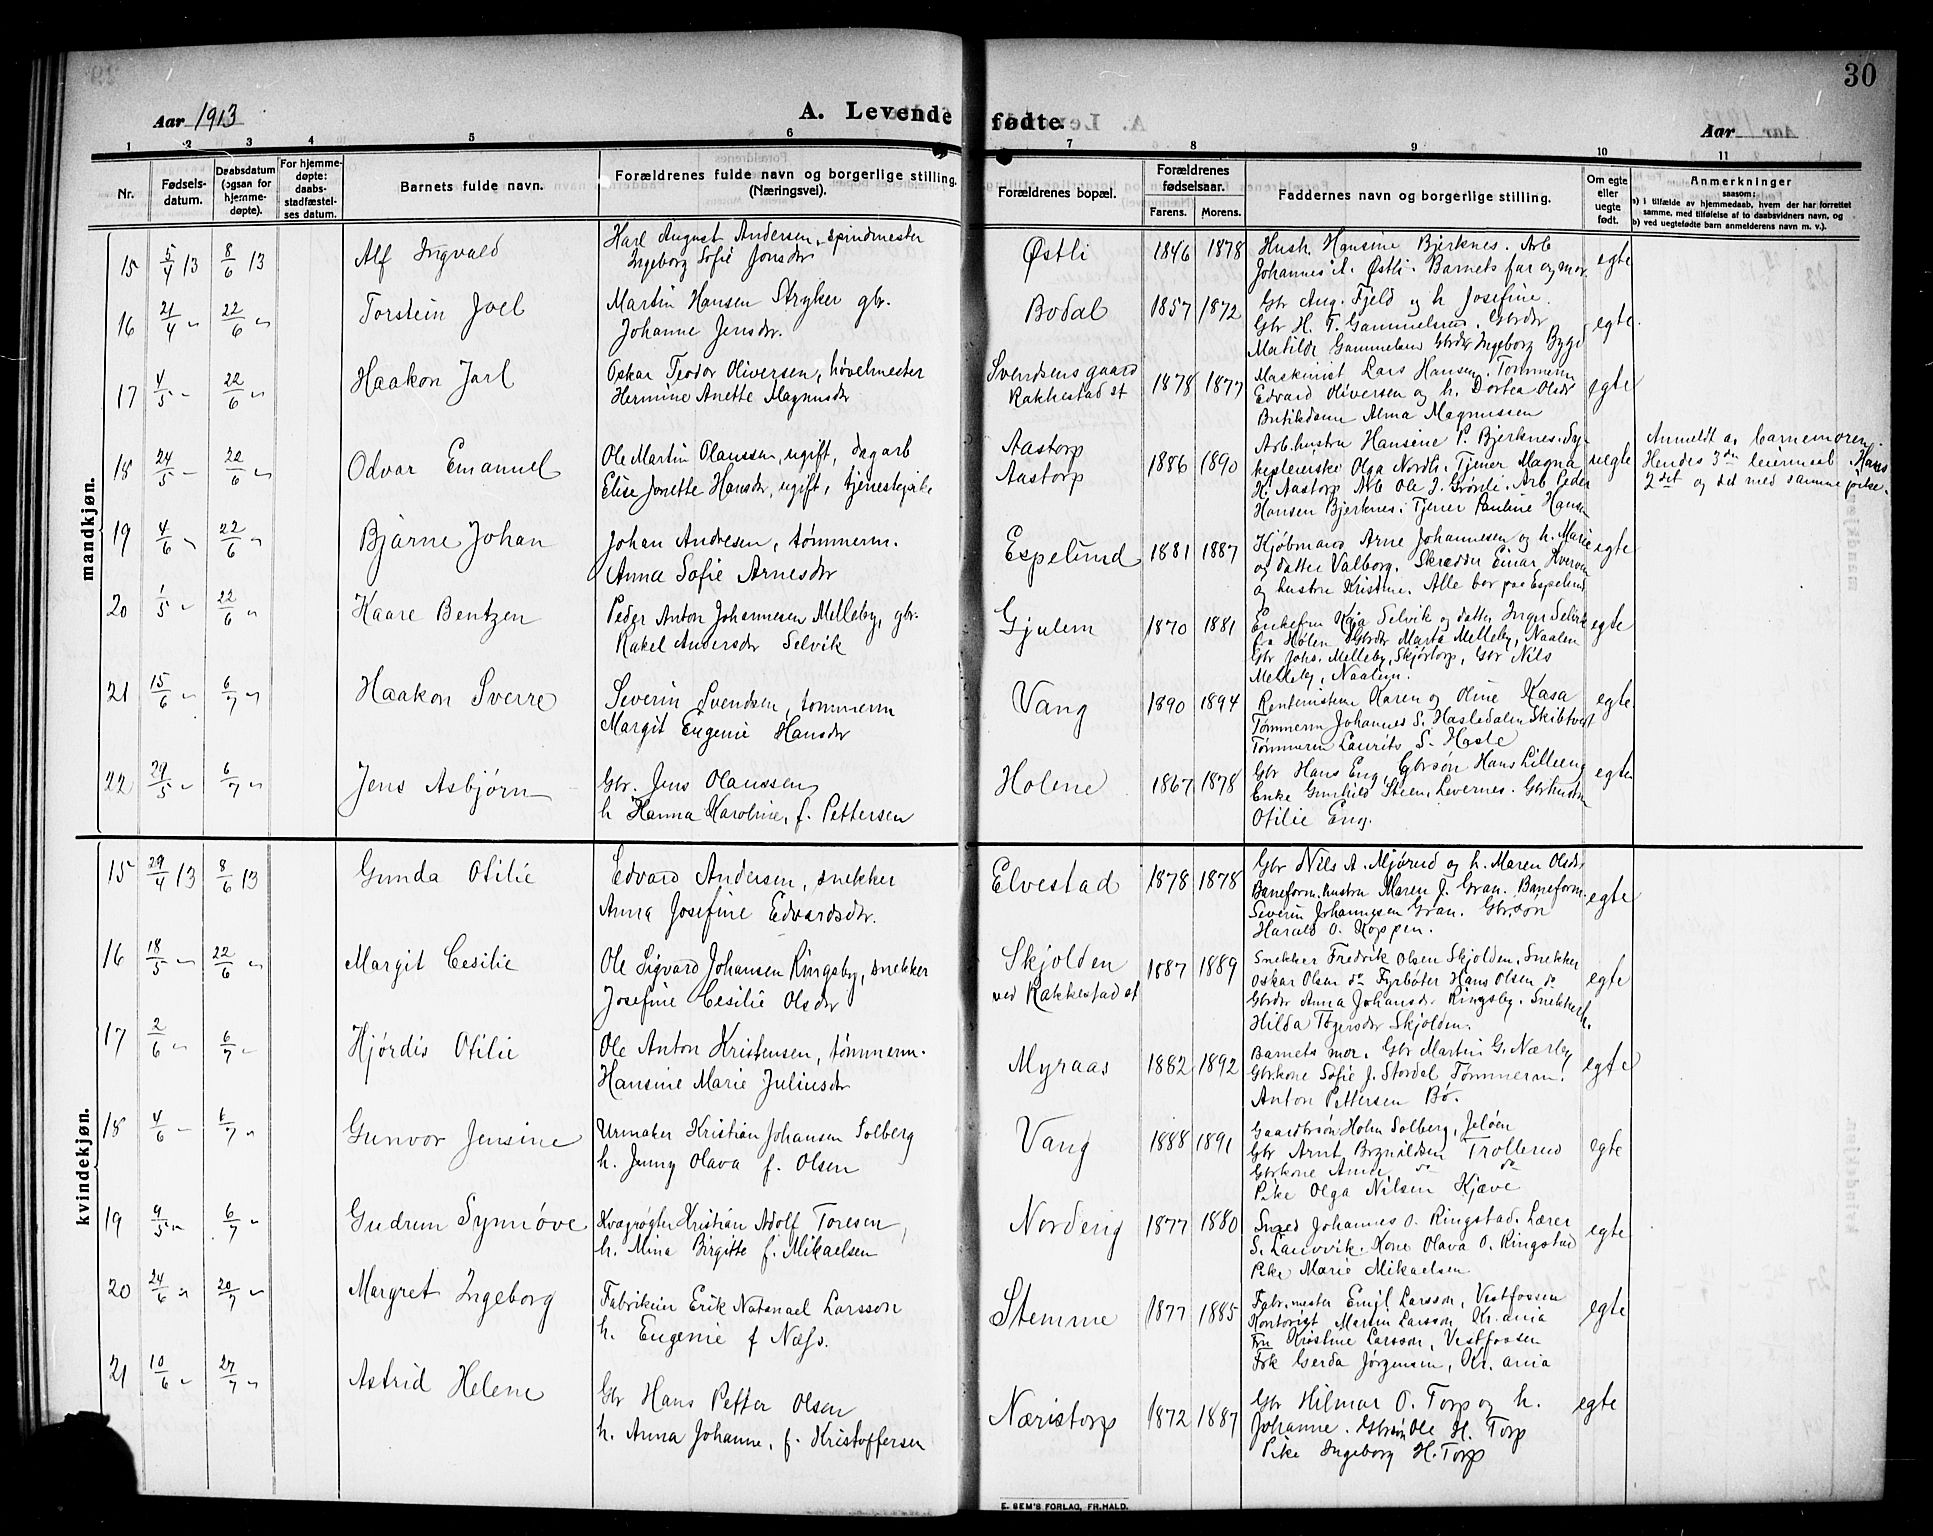 30
Aar 1913
A. Levende fødte.
Aar
1 2 3 4 5 6 7 8 9 10 11
Nr.
Fødsels-
datum.
Daabsdatum
(ogsaa for
hjemme-
døpte).
For hjemme-
døpte:
daabs-
stadfæstel-
ses datum.
Barnets fulde navn.
Forældrenes fulde navn og borgerlige stilling.
(Næringsvei).
Forældrenes bopæl.
Forældrenes
fødselsaar.
Farens. Morens.
Faddernes navn og borgerlige stilling.
Om egte
eller
uegte
født.
Anmerkninger
saasom:
a) i tilfælde av hjemmedaab, hvem der har forrettet
samme, med tilføielse af to daabsvidners navn, og
b) ved uegtefødte barn anmelderens navn m. v.).
mandkjøn.
15 5/4 13 8/6 13 Alf Ingvald
Karl August Andersen, spindmester
Ingeborg Sofie Jonsdr
Østli 1846 1878
Hush. Hansine Bjerknes. Arb
Johannes A. Østli. Barnets far og mor.
egte
16 21/4 " 22/6 " Torstein Joel
Martin Hansen Stryker gbr.
Johanne Jensdr.
Bodal 1857 1872
Gbr Aug. Fjeld og h. Josefine.
Gbr H. T. Gammelsrud. Gbrdr
Matilde Gammelsrud Gbrdr Ingeborg Byge
egte.
17 4/5 " 22/6 " Haakon Jarl
Oskar Teodor Oliversen, høvelmester
Hermine Anette Magnusdr
Svendsens gaard
Rakkestad st
1878 1877
Maskinist Lars Hansen. Tømmerm
Edvard Oliversen og h. Dortea Olsdr
Butikdame Alma Magnussen
egte
18 24/5 " 22/6 " Odvar Emanuel
Ole Martin Olaussen, ugift, dagarb
Elise Jonette Hansdr, ugift, tjenestepike
Aastorp
Aastorp
1886 1890
Arb.hustru Hansine P. Bjerknes. Sy-
kepleierske Olga Nordli. Tjener Magna
H. Aastorp Arb Ole J. Grønli. Arb Peder
Hansen Bjerknes. Tjener Pauline Hansen
uegte
Anmeldt av barnemoren.
Hendes 3de leiermaal. Hans
2det og det med samme pike.
19 4/6 " 22/6 " Bjarne Johan
Johan Andresen, tømmerm.
Anna Sofie Arnesdr
Espelund 1881 1887
Kjøbmand Arne Johannesen og h. Marie
og datter Valborg. Skrædder Einar
og hustru Kristine. Alle bor paa Espelund
egte
20 1/5 " 22/6 " Kaare Bentzen
Peder Anton Johannesen Melleby, gbr.
Rakel Andersdr Selvik
Gjulem 1870 1881
Enkefru Kaja Selvik og datter Inga Selvik
Holen Gbrdr Marta Melleby, Naalen
Gbr Johs. Melleby, Skjørtorp, Gbr Nils
Melleby, Naalen.
egte
21 15/6 " 6/7 " Haakon Sverre
Severin Svendsen, tømmerm
Margit Eugenie Hansdr
Vang 1890 1894
Rentenistene Karen og Oline Kasa
Tømmerm Johannes S. Hasledalen Skibtvet
Tømmerm Laurits S. Hasle
egte.
22 29/5 " 6/7 " Jens Asbjørn
Gbr. Jens Olaussen
h Hanna Karoline, f. Pettersen
Holene 1867 1878
Gbr Hans Eng, Gbrsøn Hans Lilleeng
Enke Gunhild Steen, Levernes. Gbrhustru
Otilie Eng.
egte
kvindekjøn.
15 29/4 13 8/6 13 Gunda Otilie
Edvard Andersen, snekker
Anna Josefine Edvardsdr.
Elvestad 1878 1878
Gbr Nils A. Mjørud og h. Maren Olsdr.
Baneform. hustru Maren J. Gran. Baneform.
Severin Johannesen Gran. Gbrsøn
Harald O. Koppen.
egte
16 18/5 " 22/6 " Margit Cesilie
Ole Sigvard Johansen Ringsby, snekker
Josefine Cesilie Olsdr
Skjolden
ved Rakkestad st
1887 1889
Snekker Fredrik Olsen Skjolden. Snekker
Oskar Olsen do Fyrbøter Hans Olsen do
Gbrdr Anna Johansdr Ringsby. Snekkerh.
Hilda Togersdr Skjolden.
egte
17 2/6 " 6/7 " Hjørdis Otilie
Ole Anton Kristensen, tømmerm.
Hansine Marie Juliusdr
Myraas 1882 1892
Barnets mor. Gbr Martin G. Nærby
Gbrkone Sofie J. Stordal Tømmerm.
Anton Pettersen Bø.
egte
18 4/6 " 6/7 " Gunvor Jensine
Urmaker Kristian Johansen Solberg
h. Jenny Olava f. Olsen
Vang 1888 1891
Gaardbrsøn Holm Solberg, Jeløen
Gbr Arnt Brynildsen Trollerud
Gbrkone Anne do do
Pike Olga Nilsen Kjæve
egte
19 9/5 " 6/7 " Gudrun Synnøve
Kvægrøgter Kristian Adolf Toresen,
h. Mina Birgitte f. Mikaelsen
Norderig 1877 1880
Smed Johannes O. Ringstad. Lærer
S. Lauvvik. Kone Olava O. Ringstad
Pike Marie Mikaelsen
egte
20 24/6 " 20/7 " Margret Ingeborg
Fabrikeier Erik Natanael Larsson
h. Eugenie f Næss.
Stemme 1877 1885
Fabr.mester Emil Larsson, Vestfossen
Kontorist Martin Larsson Kr.ania
Fru Kristine Larsson, Vestfossen
Frk Gerda Jørgensen, Kr.ania
egte
21 10/6 " 27/7 " Astrid Helene
Gbr Hans Petter Olsen
h. Anna Johanne, f. Kristoffersen
Næristorp 1872 1887
Gbr Hilmar O. Torp og h.
Johanne. Gbrsøn Ole H. Torp
Pike Ingeborg H. Torp
egte
E. SEM'S FORLAG, FR.HALD.